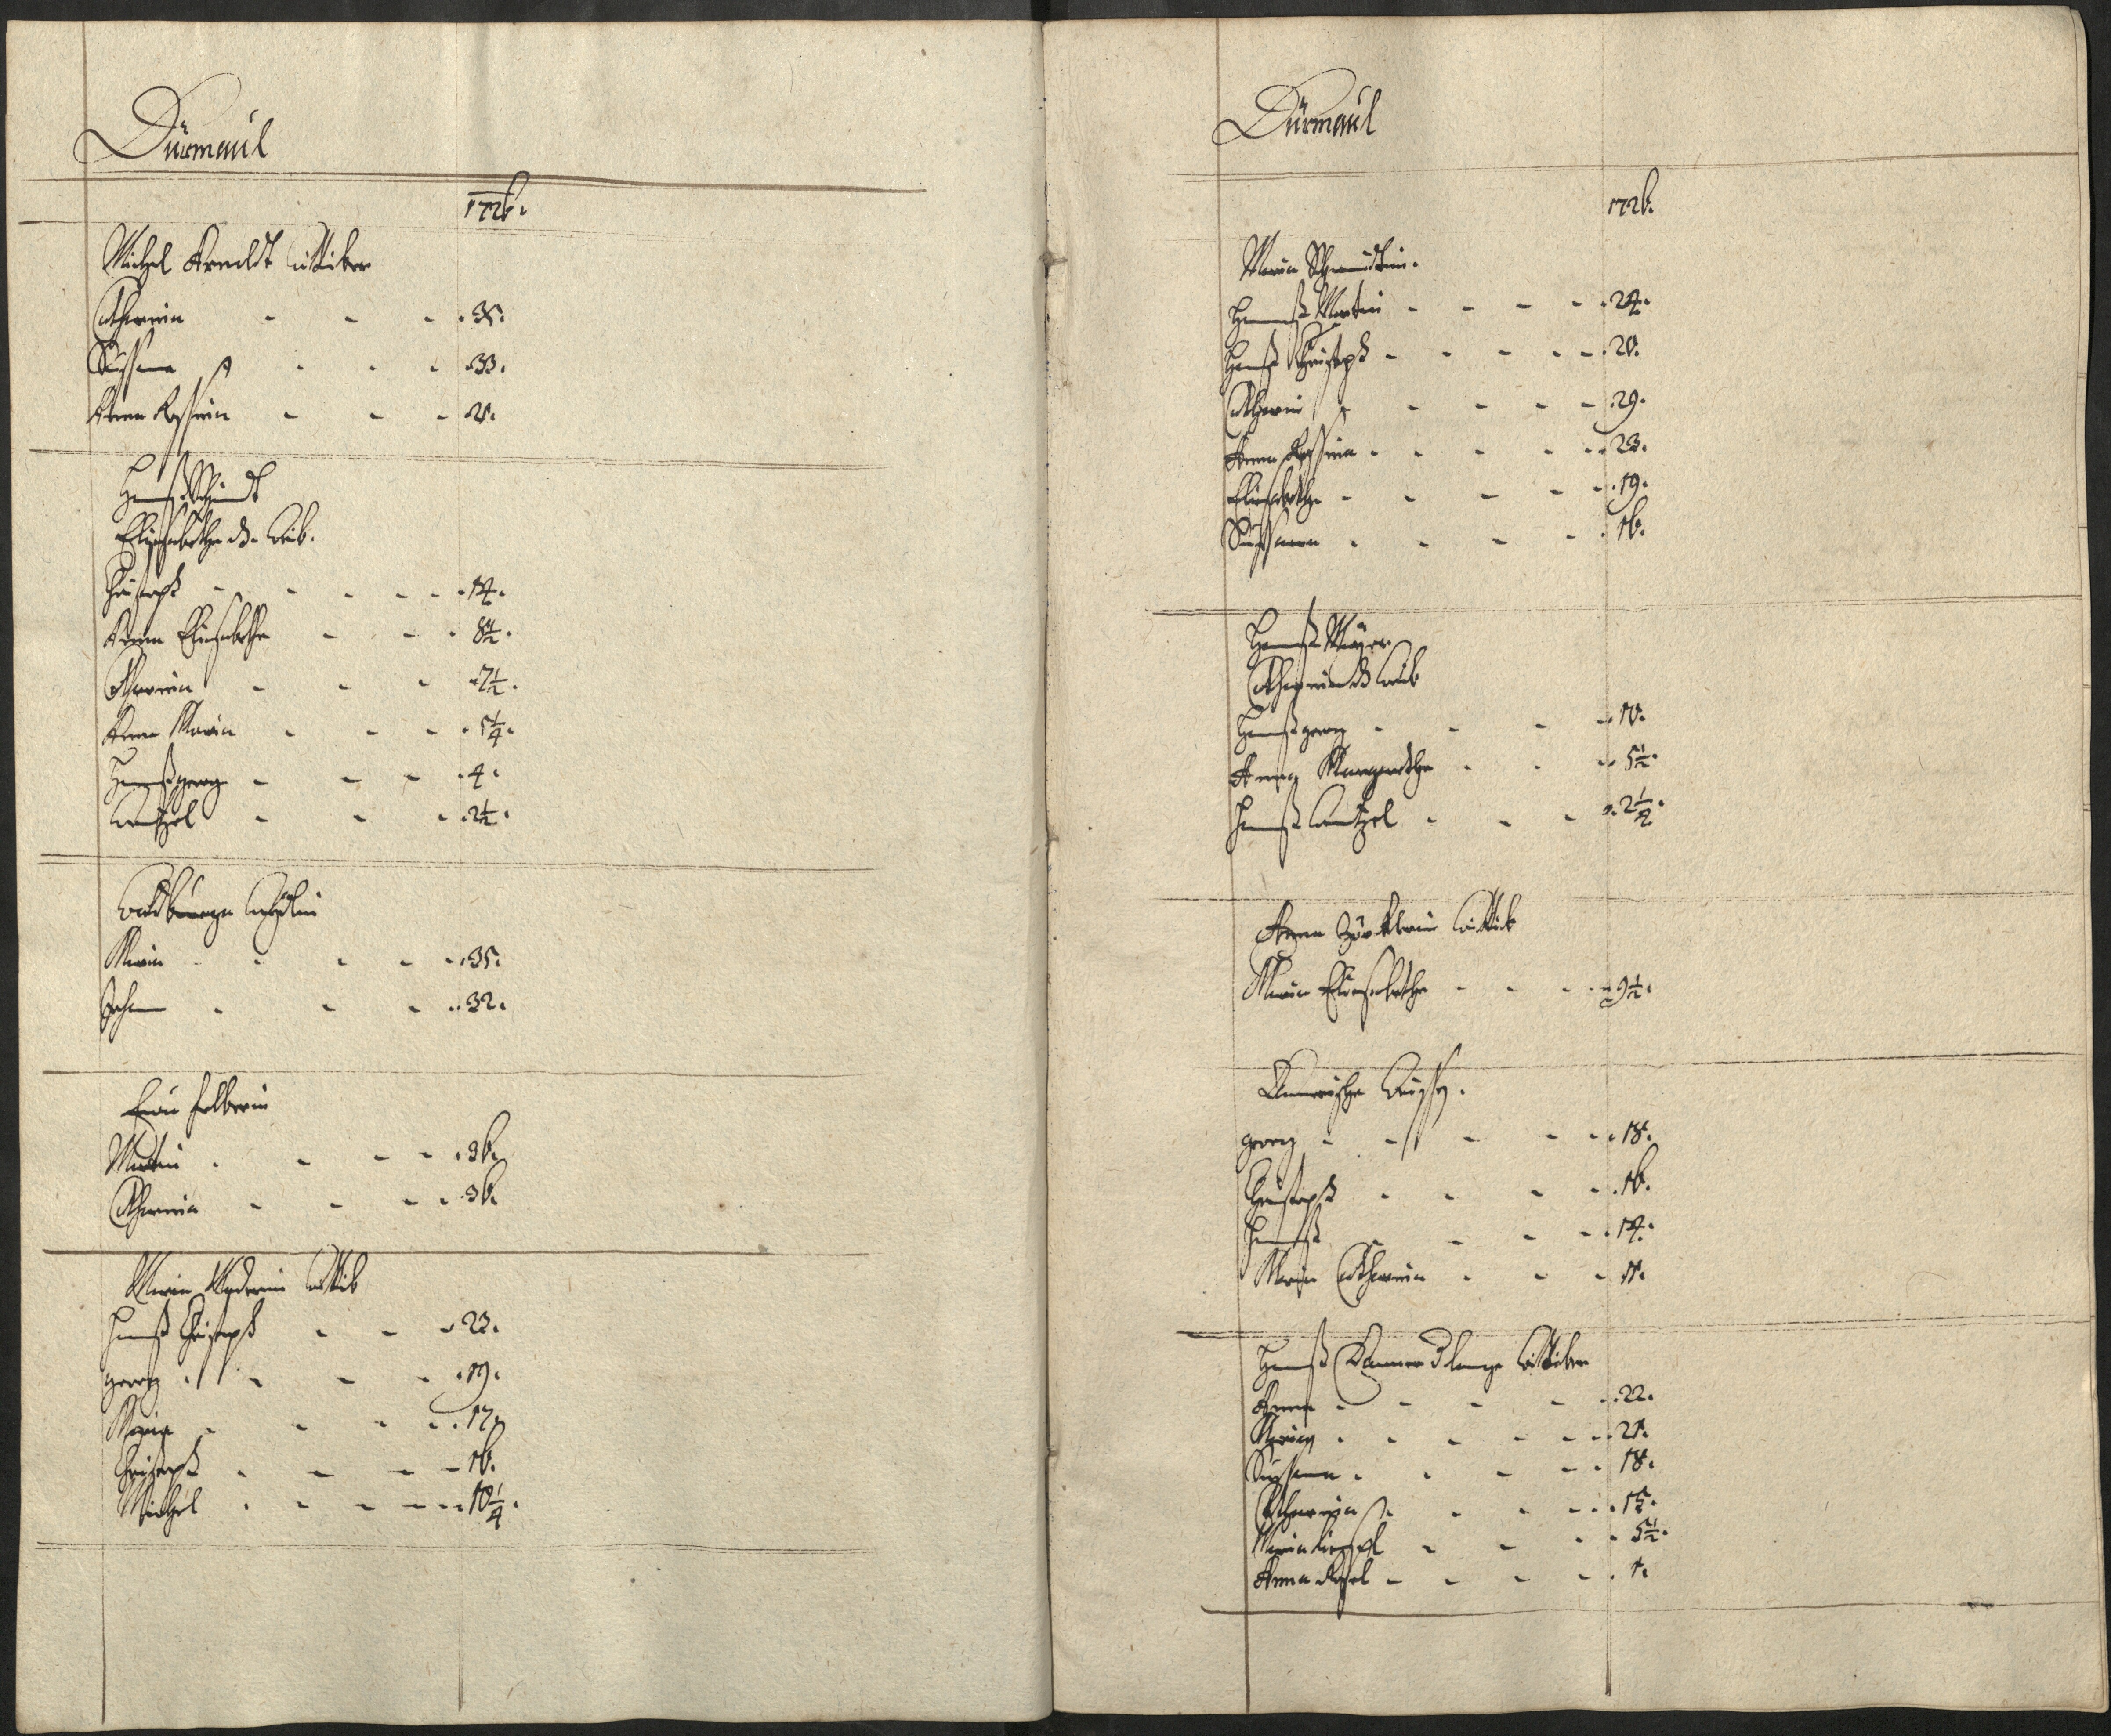 Dürmaul
1726.
Michel Arnoldt Wittiber
Catharina - - - 35.
Sussana - - - 33.
Anna Rossina - - - 21.
Hannß Schmidt
Elisabetha d. Weib.
Christoph - - - - - 14.
Anna Elisabetha - - - 8 1/2.
Catharina - - - 7 1/2.
Anna Maria - - - 5 1/4.
Hannßgeorg - - - 4.
Wentzel - - - 2 1/2.
Waldburga
Maria - - - - 35.
Johann - - - 32.
Eva Felberin
Martin - - - - 36.
Catharina - - - - 36.
Maria Maderin Wittib
Hannß Christoph - - - 23.
georg - - - - 19.
Maria - - - - 17.
Christoph - - - - 16.
Michel - - - - 10 1/4.
Dürmaul
1726.
Maria Schmidtin.
Hannß Martin - - - - 24.
Hannß Christoph - - - - 20.
Catharina - - - - 29.
Anna Rossina - - - - 23.
Elisabetha - - - - 19.
Sussanna - - - - 16.
Hannß Mayer
Catharina d. Weib
Hannßgeorg - - - 10.
Anna Margaretha - - - 5 1/2.
Hannß Wentzel - - - 2 1/2.
Anna Wittib
Maria Elisabetha - - - 9 1/2.
georg - - - - 18.
Christoph - - - - 16.
Hannß - - - - 14.
Maria Catharina - - - 11.
Hannß Wittiber
Anna - - - - 22.
Maria - - - - 21.
Sussanna - - - - 18.
Catharina - - - - 15.
Maria - - - - 5 1/2.
Anna Rosel - - - - 1.